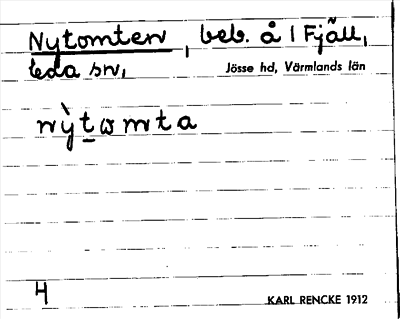 Nytomten, beb. å 1 Fjäll,
Eda sn, Jösse hd, Värmlands län
nỳtωmta
4
KARL RENCKE 1912